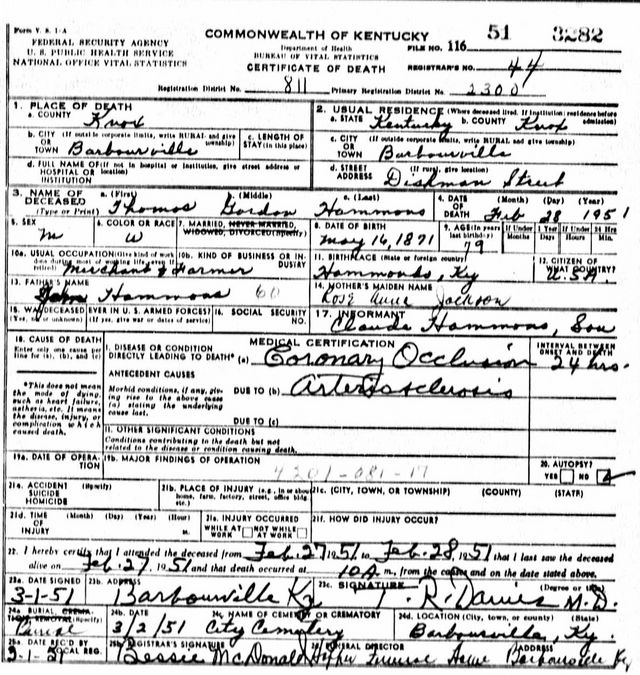 Form V. S. 1-A
FEDERAL SECURITY AGENCY
U. S. PUBLIC HEALTH SERVICE
NATIONAL OFFICE VITAL STATISTICS
COMMONWEALTH OF KENTUCKY
Department of Health
BUREAU OF VITAL STATISTICS
CERTIFICATE OF DEATH
FILE NO. 116 51 3282
REGISTRAR'S NO. 44
Registration District No. 811 Primary Registration District No. 2300
1. PLACE OF DEATH
a. COUNTY Knox
b. CITY (If outside corporate limits, write RURAL and give township)
OR TOWN Barbourville
c. LENGTH OF STAY (in this place)
d. FULL NAME OF (If not in hospital or institution, give street address or location)
HOSPITAL OR INSTITUTION
2. USUAL RESIDENCE (Where deceased lived. If institution: residence before admission)
a. STATE Kentucky b. COUNTY Knox
c. CITY (If outside corporate limits, write RURAL and give township)
OR TOWN Barbourville
d. STREET ADDRESS (If rural, give location)
Dishman Street
3. NAME OF DECEASED (Type or Print)
a. (First) Thomas b. (Middle) Gordon c. (Last) Hammons
4. DATE OF DEATH (Month) (Day) (Year)
Feb 28 1951
5. SEX
M
6. COLOR OR RACE
W
7. MARRIED, NEVER MARRIED, WIDOWED, DIVORCED (Specify)
8. DATE OF BIRTH
May 16, 1871
9. AGE (In years last birthday)
79
If Under 1 Year Months Days
If Under 24 Hrs Hours Min.
10a. USUAL OCCUPATION (Give kind of work done during most of working life, even if retired)
Merchant & Farmer
10b. KIND OF BUSINESS OR INDUSTRY
11. BIRTHPLACE (State or foreign country)
Hammonds, Ky
12. CITIZEN OF WHAT COUNTRY?
U.S.A.
13. FATHER'S NAME
John Hammons 60
14. MOTHER'S MAIDEN NAME
Rose Anne Jackson
15. WAS DECEASED EVER IN U.S. ARMED FORCES?
(Yes, no, or unknown) (If yes, give war or dates of service)
16. SOCIAL SECURITY NO.
17. INFORMANT
Claude Hammons, Son
18. CAUSE OF DEATH
Enter only one cause per line for (a), (b), and (c)
*This does not mean the mode of dying, such as heart failure, asthenia, etc. It means the disease, injury, or complication which caused death.
MEDICAL CERTIFICATION
I. DISEASE OR CONDITION DIRECTLY LEADING TO DEATH* (a) Coronary Occlusion
INTERVAL BETWEEN ONSET AND DEATH
24 hrs.
ANTECEDENT CAUSES
Morbid conditions, if any, giving rise to the above cause (a) stating the underlying cause last.
DUE TO (b) Arteriosclerosis
DUE TO (c)
II. OTHER SIGNIFICANT CONDITIONS
Conditions contributing to the death but not related to the disease or condition causing death.
19a. DATE OF OPERATION
19b. MAJOR FINDINGS OF OPERATION
4201-081-17
20. AUTOPSY?
YES NO
21a. ACCIDENT SUICIDE HOMICIDE (Specify)
21b. PLACE OF INJURY (e.g., in or about home, farm, factory, street, office bldg., etc.)
21c. (CITY, TOWN, OR TOWNSHIP) (COUNTY) (STATE)
21d. TIME OF INJURY (Month) (Day) (Year) (Hour) m.
21e. INJURY OCCURRED
WHILE AT WORK NOT WHILE AT WORK
21f. HOW DID INJURY OCCUR?
22. I hereby certify that I attended the deceased from Feb. 27, 1951 to Feb. 28, 1951 that I last saw the deceased
alive on Feb. 27, 1951 and that death occurred at 10 A m., from the causes and on the date stated above.
23a. DATE SIGNED
3-1-51
23b. ADDRESS
Barbourville Ky
23c. SIGNATURE (Degree or title)
T. R. Davies M.D.
24a. BURIAL, CREMATION, REMOVAL (Specify)
Burial
24b. DATE
3/2/51
24c. NAME OF CEMETERY OR CREMATORY
City Cemetery
24d. LOCATION (City, town, or county) (State)
Barbourville, Ky.
25a. DATE REC'D BY LOCAL REG.
3-1-51
25b. REGISTRAR'S SIGNATURE
Bessie McDonald
26. FUNERAL DIRECTOR ADDRESS
Funeral Home Barbourville Ky